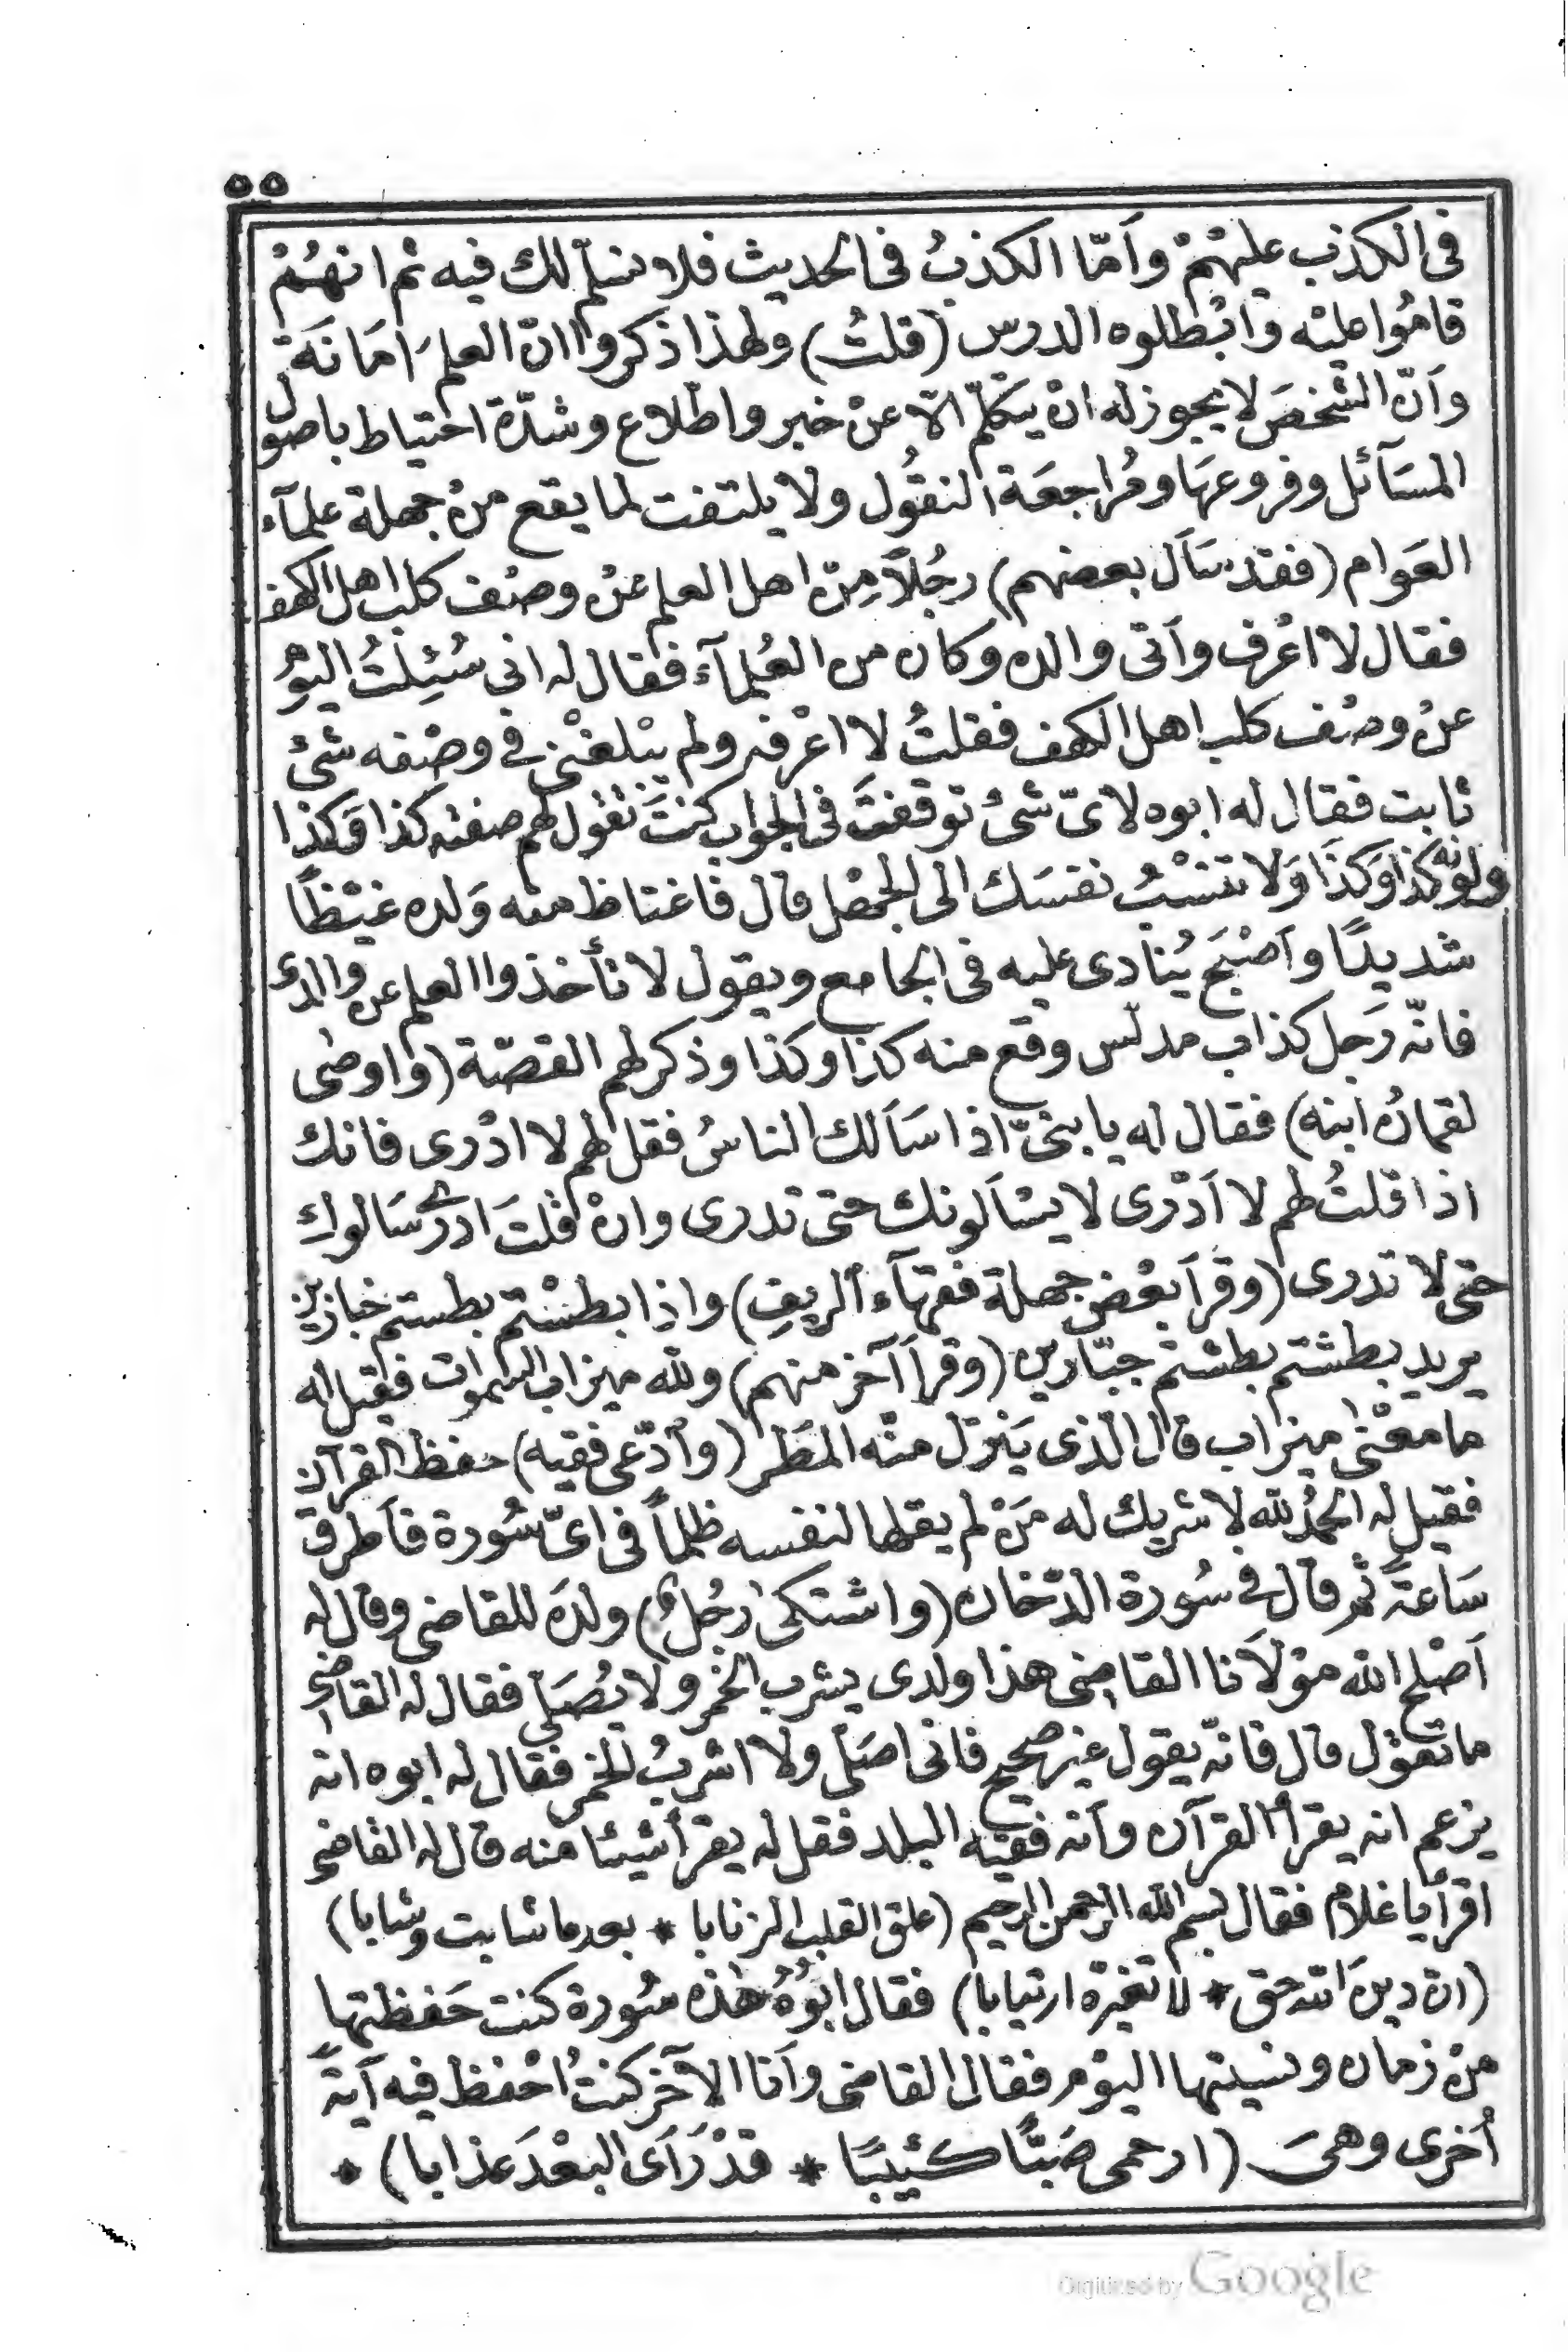 ٥٥
فى الكذب عليْهمْ وأمّا الكذبُ فى الحديث فلا نسلّم لك فيه ثم انهُمْ
قامُوا عليْه وابْطلوه الدرس (قلتُ) ولهذا ذكروا انّ العلم امَانَة
وأنّ الشّخصَ لا يجوز له انْ يتكلّم الّا عنْ خبر واطّلاع وشدّة احتياط باصول
المسَآئل وفروعهَا ومُراجعَة النقُول ولا يلتفت لما يقع منْ جهلة علمآء
العَوام (فقدْ سَأل بعضهم) رجُلاً مِنْ اهل العلم عنْ وصْف كلب اهل الكهف
فقال لا اعْرف وأتى والده وكان من العُلمآء فقال له انى سُئِلْتُ اليوْم
عنْ وصْف كلب اهل الكهف فقلتُ لا اعْرفه ولم يبْلغْنى فى وصْفه شئ
ثابت فقال له ابوه لاىّ شئ توقفتَ فى الجواب كنتَ تقول لهم صفته كذا وَكذا
ولونه كذا وَكذَا وَلا تنسْبُ نفسَك الى الجهْل قال فاغتاظ منه وَلده غيْظاً
شديدًا وأصْبَح يُنادى عليه فى الجامع ويقول لا تأخذوا العلم عن والدى
فانّه رَجل كذاب مدلّس وقع منه كذا وكذا وذكر لهم القصّة (واوصٰى
لقمانُ ابنه) فقال له يا بنىّ اذا سَألك الناسُ فقل لهم لا ادْرى فانك
اذا قلتُ لهم لا أدْرى لا يسْألونك حتى تدرى وانْ قلتَ ادرى سَالوك
حتى لا تدرى (وقرأ بعْض جهلة فقهآء الريف) واذا بطسْتم بطستم خبازين
يريد بطشتم بطشتم جبّارين (وقرأ آخر منهم) ولله ميزاب السموات فقيل له
ما معْنى ميزاب قال الّذى يَنزل منْه المطَر (وأدّعى فقيه) حفظ القرآن
فقيل له الحمْدُ لله لا شريك له مَنْ لم يقلها لنفسه ظلماً فى اىّ سُورة فأطرق
سَاعةً ثم قال فى سُورة الدّخان (واشتكىٰ رجُلٌ) ولدَه للقاضى وقال له
أصْلح الله موْلاَنا القاضى هذا ولدى يشرب الخمْر ولا يُصَلى فقال له القاضى
ما تقوْل قال فانّه يقول غيْر صحيح فانى اصَلى ولا اشربُ الخمْر فقال له ابوه انه
يزعم انه يقرأ القرآن وأنه فقيْه البلد فقل له يقرأ شيئا منه قال له القاضى
اقرأ يا غلام فقال بسم الله الرحمن الرحيم (علق القلب الزنابا * بعد ما شابت وشابا)
(انّ دينَ الله حق * لا تغيّره ارتيابا) فقال ابُوُهُ هذه سُورة كنت حَفظتها
منْ زمان ونسيتها اليوْم فقال القاضى وأنا الآخر كنتُ احْفظ فيه آيةً
أخرى وهىَ (ارحمى صَبًّا كئيبًا * قدْ رَأى البعْدَ عذابا) *
Digitized by Google